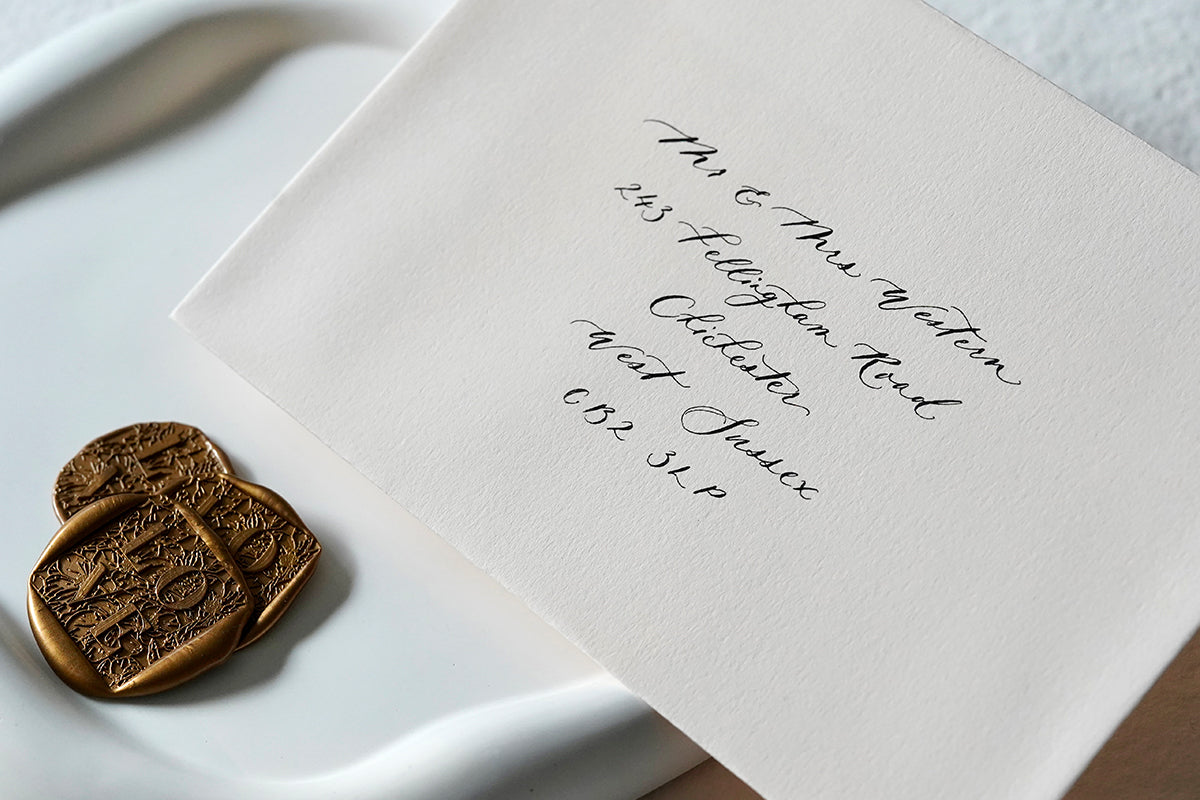 Mr & Mrs Western
243 Fellingham Road
Chichester
West Sussex
CB2 3LP